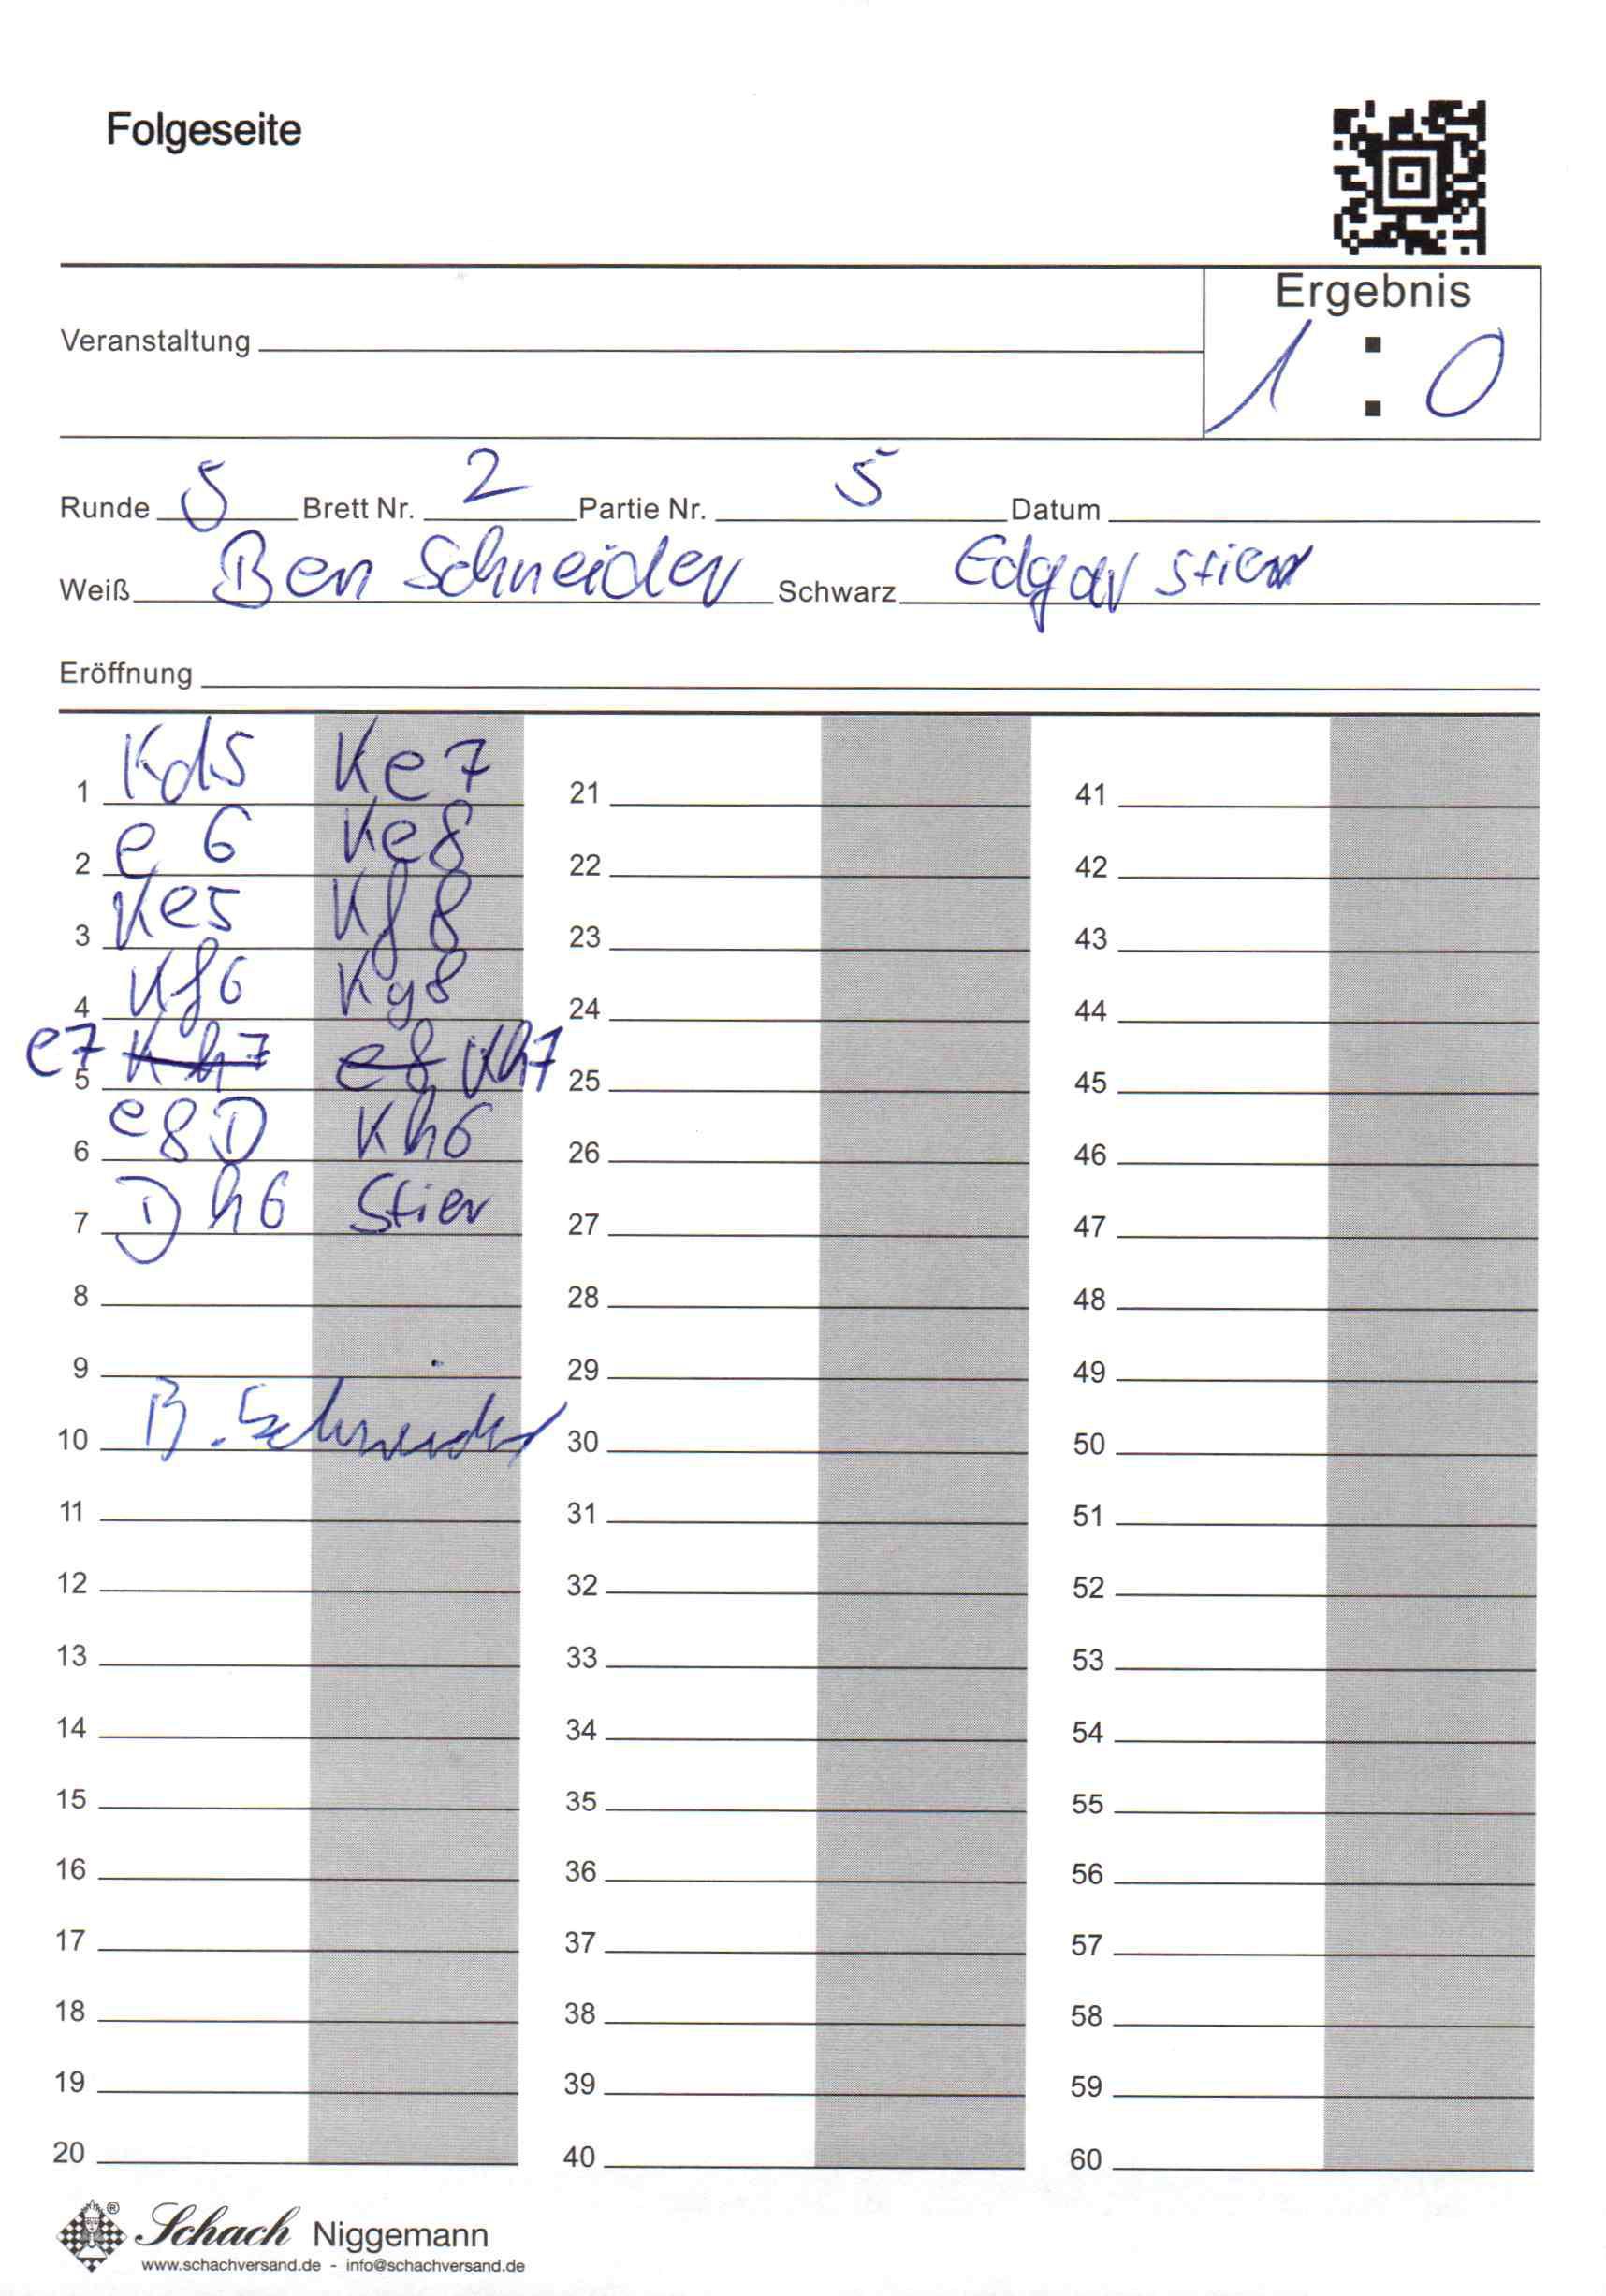 Folgeseite
Ergebnis
Veranstaltung
1 : 0
Runde 5 Brett Nr. 2 Partie Nr. 5 Datum
Weiß Ben Schneider Schwarz Edgar Stier
Eröffnung
1 Kd5 Ke7 21 41
2 e6 Ke8 22 42
3 Ke5 Kf8 23 43
4 Kf6 Kg8 24 44
5 e7 Kh7 e8 Kh7 25 45
6 e8D Kh6 26 46
7 Dh6 Stier 27 47
8 28 48
9 29 49
10 B. Schneider 30 50
11 31 51
12 32 52
13 33 53
14 34 54
15 35 55
16 36 56
17 37 57
18 38 58
19 39 59
20 40 60
® Schach Niggemann
www.schachversand.de - info@schachversand.de